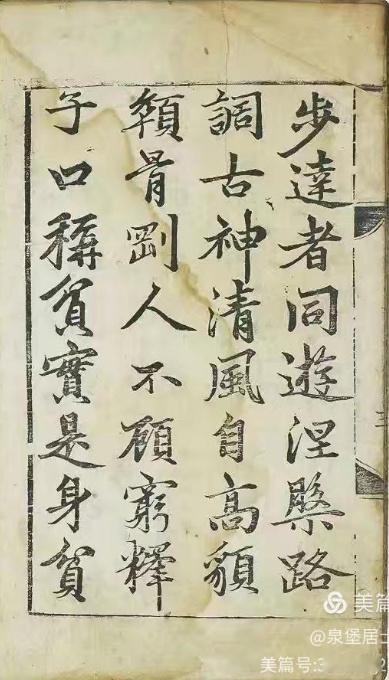 步達者同遊涅槃路
調古神清風自高貌
顇骨剛人不顧窮釋
子口稱貧實是身貧
三
美篇
@泉堡居士
美篇号:3